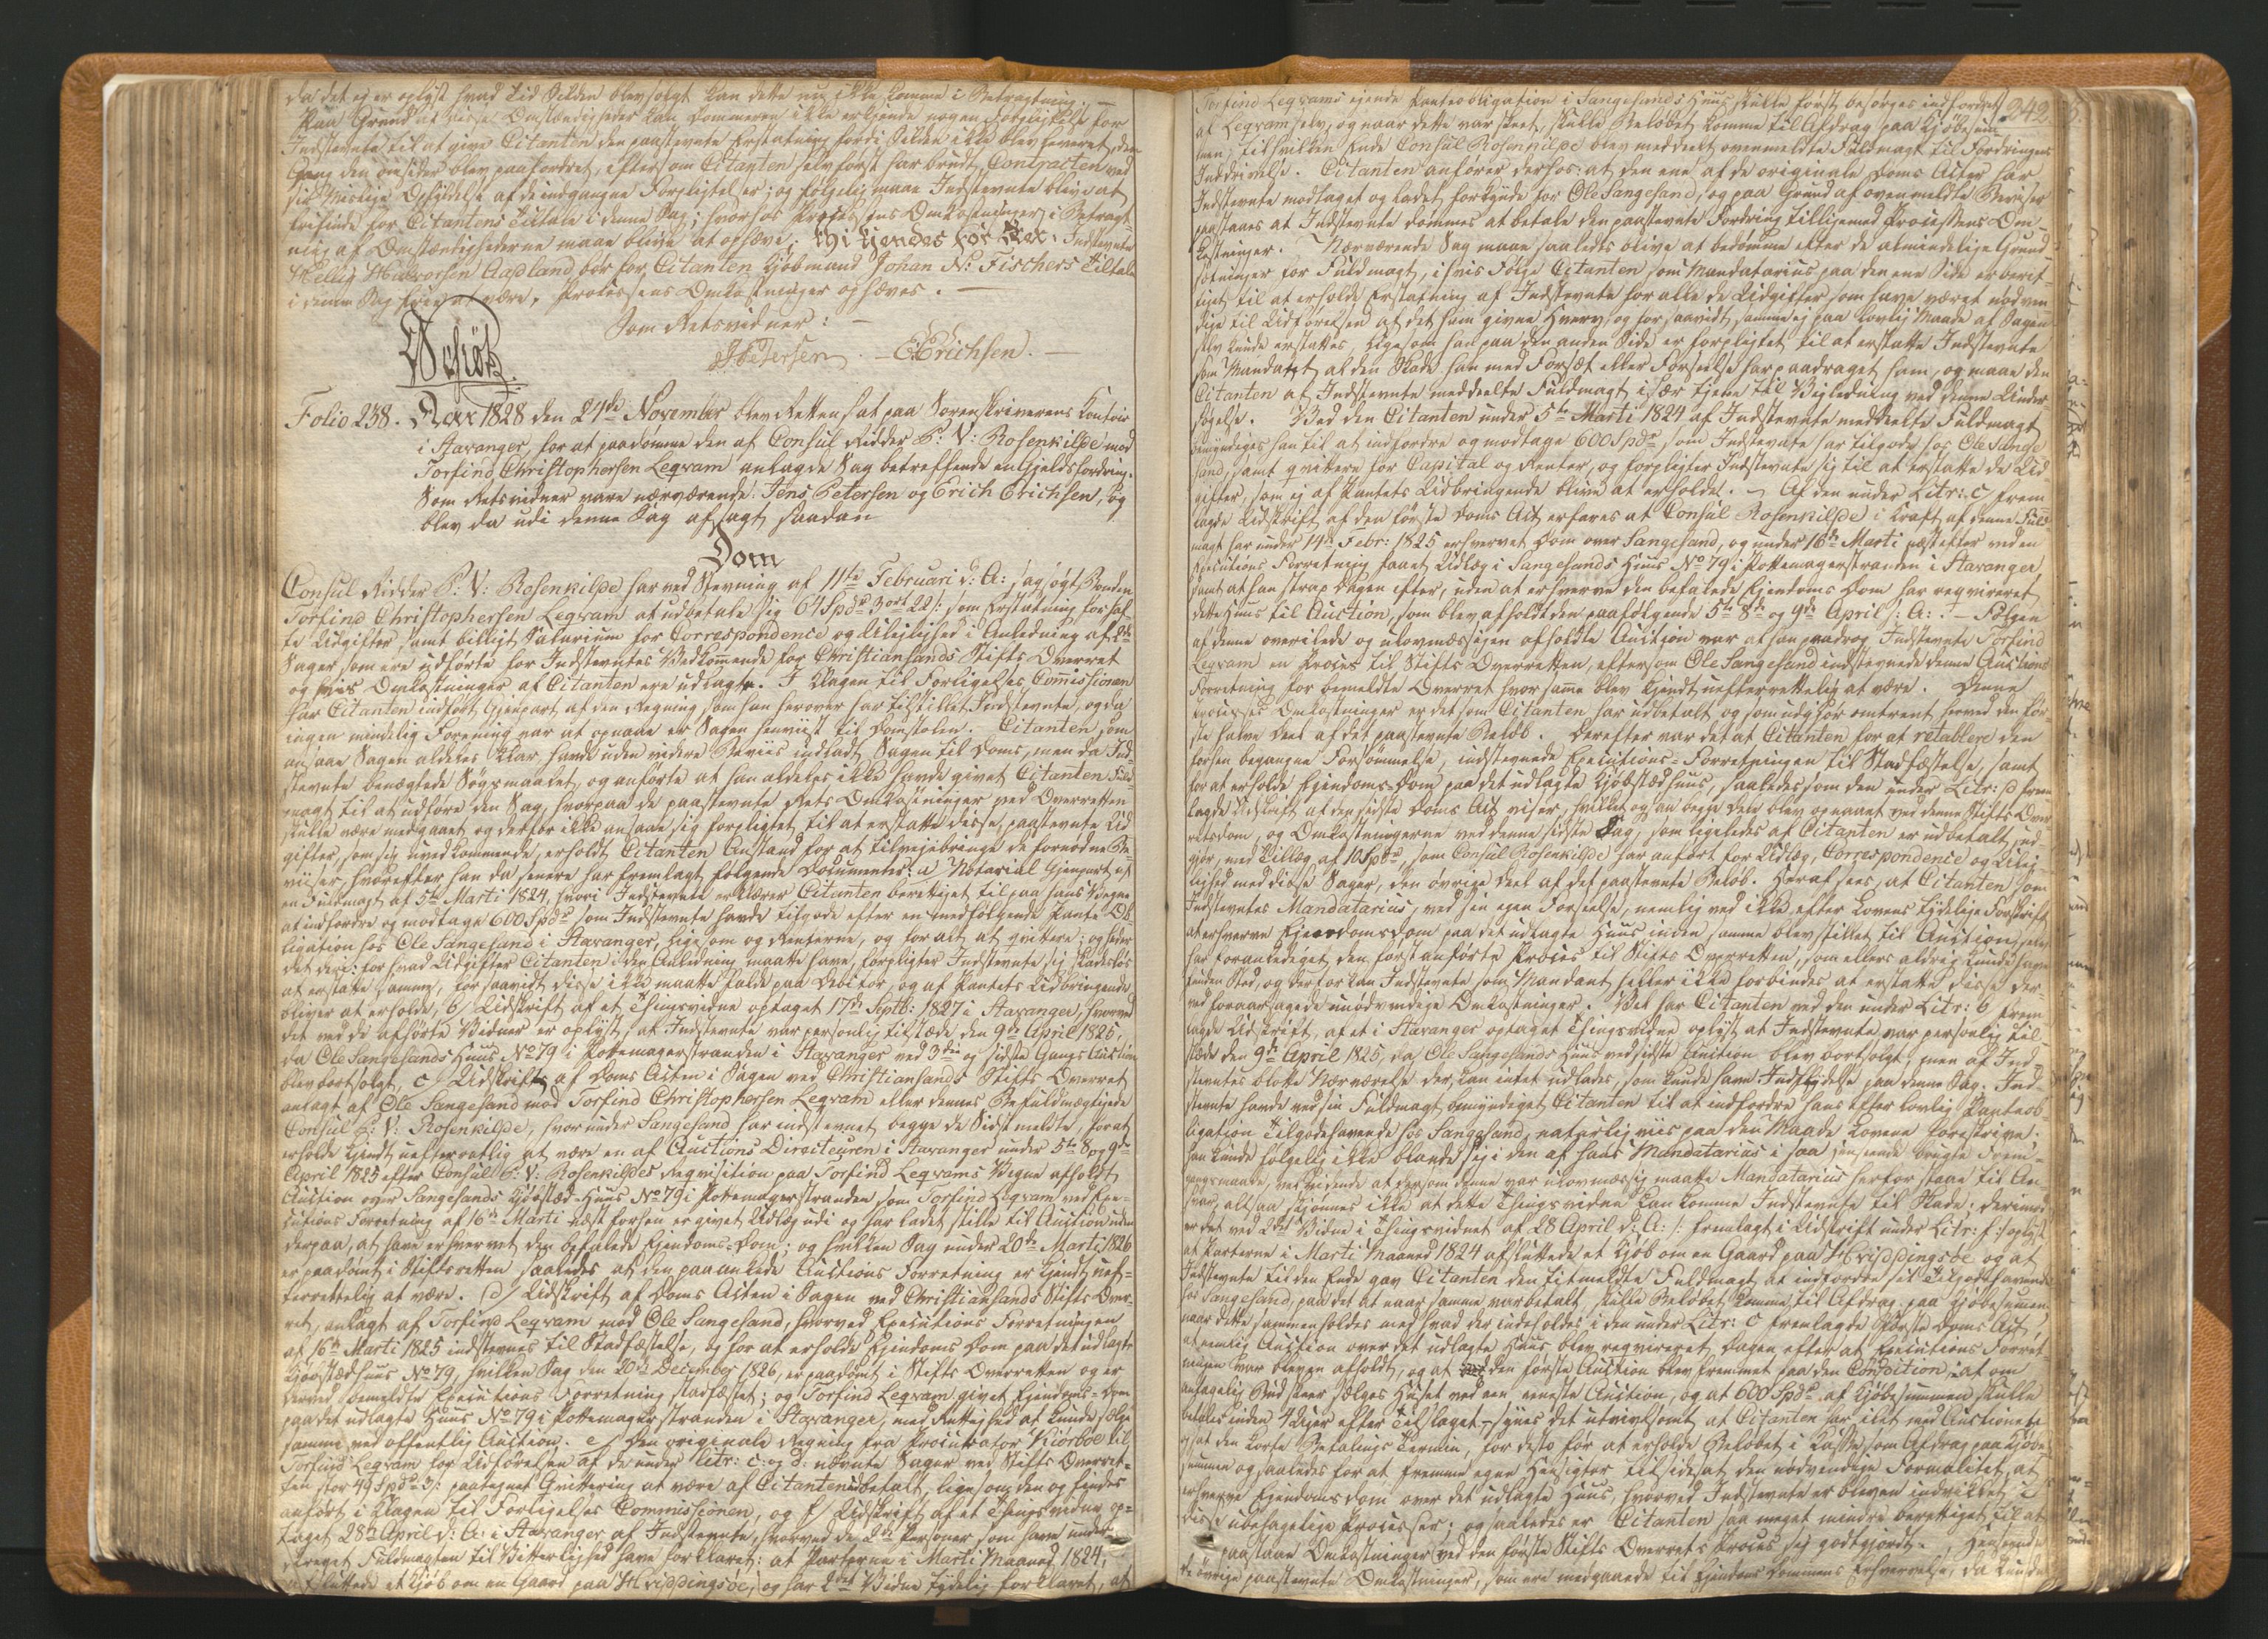 da det ej er oplyst hvad Tid Silden blev solgt kan dette nu ikke komme i Betragtning. —
Paa Grund af disse Omstændigheder kan Dommeren ikke erkjende nogen Forpligtelse for
Indstevnte til at give Citanten den paastevnte Erstatning fordi Silden ikke blev leveret den
Gang den omsider blev paafordret, eftersom Citanten selv først har brudt Contracten ved
sin Opfyldelse af de indgangne Forpligtelser; og følgelig maae Indstevnte blive at
frifinde for Citantens Tiltale i denne Sag; hvorhos Processens Omkostninger i Betragt-
ning af Omstændighederne maae blive at ophæve; thi kjendes for Ret: Indstevnte
Hellig Halvorsen Aapland bør for Citanten Kjøbmand Johan N: Fischers Tiltale
i denne Sag frie at være. Processens Omkostninger ophæves. —
Som Retsvidner: —
J Petersen. — E Erichsen. —
Schiøtz
Folio 238. Aar 1828 den 24de November blev Retten sat paa Sorenskriverens Contoir
i Stavanger, for at paadømme den af Consul Ridder P: V: Rosenkilde mod
Torfind Christophersen Leqvam anlagde Sag betreffende en Gjeldsfordring.
Som Retsvidner vare nærværende: Jens Petersen og Erich Erichsen, og
blev da udi denne Sag afsagt saadan
Dom
Consul Ridder P: V: Rosenkilde har ved Stevning af 11te Februari d: A: sagsøgt Bonden
Torfind Christophersen Leqvam at udbetale sig 64 Spd 3 ort 22 s: som Erstatning for haf-
te Udgifter, samt billigt Salarium for Correspondence og Uleilighed i Anledning af 2de
Sager som ere udførte for Indstevntes Vedkommende for Christiansands Stifts Overret
og hvis Omkostninger af Citanten ere udlagte. I Klagen til Forligelses Commissionen
har Citanten indført Gjenpart af den Regning som han herover har tilstillet Indstevnte, og da
ingen mindelig Forening var at opnaae er Sagen henviist til Domstolen. Citanten, som
ansaae Sagen aldeles klar, havde uden videre Beviis indladt Sagen til Doms, men da Ind-
stevnte benægtede Søgsmaalet, og anførte at han aldeles ikke havde givet Citanten Fuld-
magt til at udføre den Sag, hvorpaa de paastevnte Rets Omkostninger ved Overretten
skulle være medgaaet og derfor ikke ansaae sig forpligtet til at erstatte disse paastevnte Ud-
gifter, som sig uvedkommende, erholdt Citanten Anstand for at tilvejebringe de fornødne Be-
viiser, hvorefter han da senere har fremlagt følgende Documenter: a Notarial Gjenpart af
en Fuldmagt af 5te Marti 1824, hvori Indstevnte erklærer Citanten berettiget til paa hans Vegne
at indfordre og modtage 600 Spd som Indstevnte havde tilgode efter en medfølgende Pante Ob-
ligation hos Ole Sangesand i Stavanger, ligesom og Renterne, og for alt at qvitere; og heder
det deri: for hvad Udgifter Citanten i den Anledning maatte have, forpligter Indstevnte sig skadesløs
at erstatte samme, forsaavidt disse ikke maatte falde paa Debitor, og af Pantets Udbringende
bliver at erholde, b/ Udskrift af et Thingsvidne optaget 17de Septb: 1827 i Stavanger, hvorved
det ved de afhørte Vidner er oplyst, at Indstevnte var personlig tilstæde den 9de April 1825,
da Ole Sangesands Huus No 79 i Pottemagerstranden i Stavanger ved 3die og sidste Gangs Auction
blev bortsolgt, c/ Udskrift af Doms Acten i Sagen ved Christiansands Stifts Overret
anlagt af Ole Sangesand mod Torfind Christophersen Leqvam eller dennes Befuldmægtigede
Consul P: V: Rosenkilde, hvorunder Sangesand har indstevnet begge de Sidstmeldte, for at
erholde kjendt uefterretlig at være en af Auctions Directeuren i Stavanger under 5te 8 og 9de
April 1825 efter Consul P: V: Rosenkildes Reqvisition paa Torfind Leqvams Vegne afholdt
Auction over Sangesands Kjøbstæd-Huus No 79 i Pottemagerstranden som Torfind Leqvam ved Exe-
cutions Forretning af 16de Marti næst forhen er givet Udlæg udi og har ladet stille til Auction uden
derpaa, at have erhvervet den befalede Ejendoms-Dom; og hvilken Sag under 20de Marti 1826
er paadømt i Stiftsretten saaledes at den paaankede Auctions Forretning er kjendt uef-
terrettelig at være. d/ Udskrift af Doms Acten i Sagen ved Christiansands Stifts Over-
ret, anlagt af Torfind Leqvam mod Ole Sangesand, hvorved Executions Forretningen
af 16de Marti 1825 indstevnes til Stadfæstelse, og for at erholde Ejendoms Dom paa det udlagte
Kjøbstædhuus No 79, hvilken Sag den 20de December 1826, er paadømt i Stifts Overretten og er
derved bemeldte Executions Forretning stadfæstet; og Torfind Leqvam givet Ejendoms-Dom
paa det udlagte Huus No 79 i Pottemagerstranden i Stavanger, med Rettighed at kunde sælge
samme ved offentlig Auction. e/ Den originale Regning fra Procurator Kiørboe til
Torfind Leqvam for Udførelsen af de under Litr: c: og d: nævnte Sager ved Stifts Overret-
ten stor 49 Spd 3 s: paategnet Qvittering at være af Citanten udbetalt, ligesom den og findes
anført i Klagen til Forligelses Commissionen, og f/ Udskrift af et Thingsvidne op-
taget 28de April d: A: i Stavanger af Indstevnte, hvorved de 2de Personer som have under-
skrevet Fuldmagten til Vitterlighed have forklaret: at Parterne i Marti Maaned 1824,
afsluttede et Kjøb om en Gaard paa Hviddingsøe, og har 2det Vidne tydelig forklaret, at
242
Torfind Leqvams ejende Panteobligation i Sangesands Huus skulle først besørges indfordret
af Leqvam selv, og naar dette var skeet, skulle Beløbet komme til Afdrag paa Kjøbesum-
men, til hvilken Ende Consul Rosenkilde blev meddeelt ovenmeldte Fuldmagt til Fordringens
Inddrivelse. Citanten anfører derhos: at den ene af de originale Doms Acter har
Indstevnte modtaget og ladet forkynde for Ole Sangesand, og paa Grund af ovenmeldte Beviser
paastaaes at Indstevnte dømmes at betale den paastevnte Fordring tilligemed Processens Om-
kostninger. Nærværende Sag maae saaledes blive at bedømme efter de almindelige Grund-
sætninger for Fuldmagt, ifvis Følge Citanten som Mandatarius paa den ene Side er beret-
tiget til at erholde Erstatning af Indstevnte for alle de Udgifter som have været nødven-
dige til Udførelsen af det ham givne Hverv, og forsaavidt samme ej paa lovlig Maade af Sagen
selv kunde erstattes, ligesom han paa den anden Side er forpligtet til at erstatte Indstevnte
som Mandant al den Skade han med Forsæt eller Forseelse har paadraget ham, og maae den
Citanten af Indstevnte meddeelte Fuldmagt især tjene til Vejledning ved denne Under-
søgelse. Ved den Citanten under 5te Marti 1824 af Indstevnte meddeelte Fuldmagt
bemyndiges han til at indfordre og modtage 600 Spd som Indstevnte har tilgode hos Ole Sange-
sand, samt qvittere for Capital og Renter, og forpligter Indstevnte sig til at erstatte de Ud-
gifter, som ej af Pantets Udbringende blive at erholdet. — Af den under Litr: c/ frem-
lagde Udskrift af den første Doms Act erfares at Consul Rosenkilde i Kraft af denne Fuld-
magt har under 14de Febr: 1825 erhvervet Dom over Sangesand, og under 16de Marti næst efter ved en
Executions Forretning faaet Udlæg i Sangesands Huus No 79 i Pottemagerstranden i Stavanger
samt at han strax Dagen efter, uden at erhverve den befalede Ejendoms Dom har reqvireret
dette Huus til Auction, som blev afholdt den paafølgende 5te 8de og 9de April s: A: . — Følgen
af denne overilede og ulovmæssigen afholdte Auction var at han paadrog Indstevnte Torfind
Leqvam en Proces til Stifts Overretten, eftersom Ole Sangesand indstevnede denne Auctions
Forretning for bemeldte Overret hvor samme blev kjendt uefterrettelig at være. Denne
Processes Omkostninger er det som Citanten har udbetalt, og som udgjør omtrent herved den før-
ste halve Deel af det paastevnte Beløb. Derefter var det at Citanten for at retablere den
forhen begangne Forsømmelse, indstevnede Executions-Forretningen til Stadfæstelse, samt
for at erholde Ejendoms-Dom paa det udlagte Kjøbstædhuus, saaledes som den under Litr: d frem-
lagde Udskrift af den sidste Doms Act viser, hvilket ogsaa begge Dele blev opnaaet ved denne Stifts Over-
retsdom, og Omkostningerne ved denne sidste Sag, som ligeledes af Citanten er udbetalt, ud-
gjør, med Tillæg af 10 Spd, som Consul Rosenkilde har anført for Udlæg, Correspondence og Ulej-
lighed med disse Sager, den øvrige Deel af det paastevnte Beløb. Heraf sees, at Citanten som
Indstevntes Mandatarius, ved sin egen Forseelse, nemlig ved ikke efter Lovens tydelige Forskrift
at erhverve Ejendomsdom paa det udlagte Huus inden samme blev stillet til Auction, selv
har foranlediget den først anførte Proces til Stifts Overretten, som ellers aldrig kunde have
funden Sted, og derfor kan Indstevnte som Mandant heller ikke forbindes at erstatte disse der-
ved foraarsagede unødvendige Omkostninger. Vel har Citanten ved den under Litr: b frem-
lagde Udskrift af et i Stavanger optaget Thingsvidne oplyst at Indstevnte var personlig til-
stæde den 9de April 1825, da Ole Sangesands Huus ved sidste Auction blev bortsolgt; men af Ind-
stevntes blotte Nærværelse der, kan intet udledes, som kunde have Indflydelse paa denne Sag. Ind-
stevnte havde ved sin Fuldmagt bemyndiget Citanten til at indfordre hans efter lovlig Panteob-
ligation Tilgodehavende hos Sangesand, naturligviis paa den Maade Lovene foreskrive.
han kunde følgelig ikke blande sig i den af hans Mandatarius i saa Henseende brugte Frem-
gangsmaade, vel vidende at dersom denne var ulovmæssig maatte Mandatarius herfor staae til An-
svar, altsaa skjønnes ikke at dette Thingsvidne kan komme Indstevnte til Skade; derimod
er det ved 2det Vidne i Thingsvidnet af 28 April d: A: /: fremlagt i Udskrift under Litr: f :/ oplyst
at Parterne i Marti Maaned 1824 afsluttede et Kjøb om en Gaard paa Hviddingsøe og at
Indstevnte til den Ende gav Citanten den titmeldte Fuldmagt at indfordre sit Tilgodehavende
hos Sangesand, paa det at naar samme var betalt, skulle Beløbet komme til Afdrag paa Kjøbesummen;
naar dette sammenholdes med hvad der indeholdes i den under Litr: c fremlagde første Doms Act,
at nemlig Auction over det udlagte Huus blev reqvireret Dagen efter at Executions Forret-
ningen var bleven afholdt, og at den første Auction blev fremmet paa den Condition: at om
antagelig Bud skeer sælges Huset ved een eneste Auction, og at 600 Spd af Kjøbesummen skulle
betales inden 4 Uger efter Tilslaget, — synes det utvivlsomt at Citanten har ilet med Auctionen
og sat den korte Betalings Termin, for desto før at erholde Beløbet i Kasse som Afdrag paa Kjøbe-
summen og saaledes for at fremme egne Hensigter tilsidesat den nødvendige Formalitet, at
erhverve Ejendomsdom over det udlagte Huus, hvorved Indstevnte er bleven indviklet i
disse ubehagelige Processer; og saaledes er Citanten saa meget mindre berettiget til at
paastaae Omkostninger ved den første Stifts Overrets Proces sig godtgjordt. Henseende
de øvrige paastevnte Omkostninger, som ere medgaaede til Ejendoms Dommens Erhvervelse, da kunde